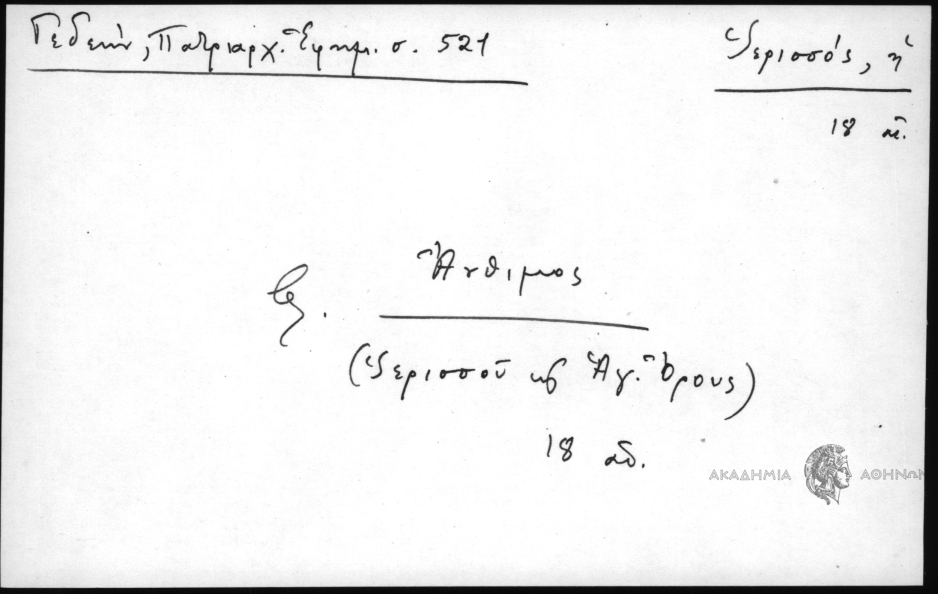 Γεδεών, Πατριαρχ. Ἐφημ. σ. 521
Ἱερισσός, ἡ
18 αἰ.
Ἄνθιμος
(Ἱερισσοῦ κ Ἁγ. Ὄρους)
18 αἰ.
ΑΚΑΔΗΜΙΑ ΑΘΗΝΩΝ